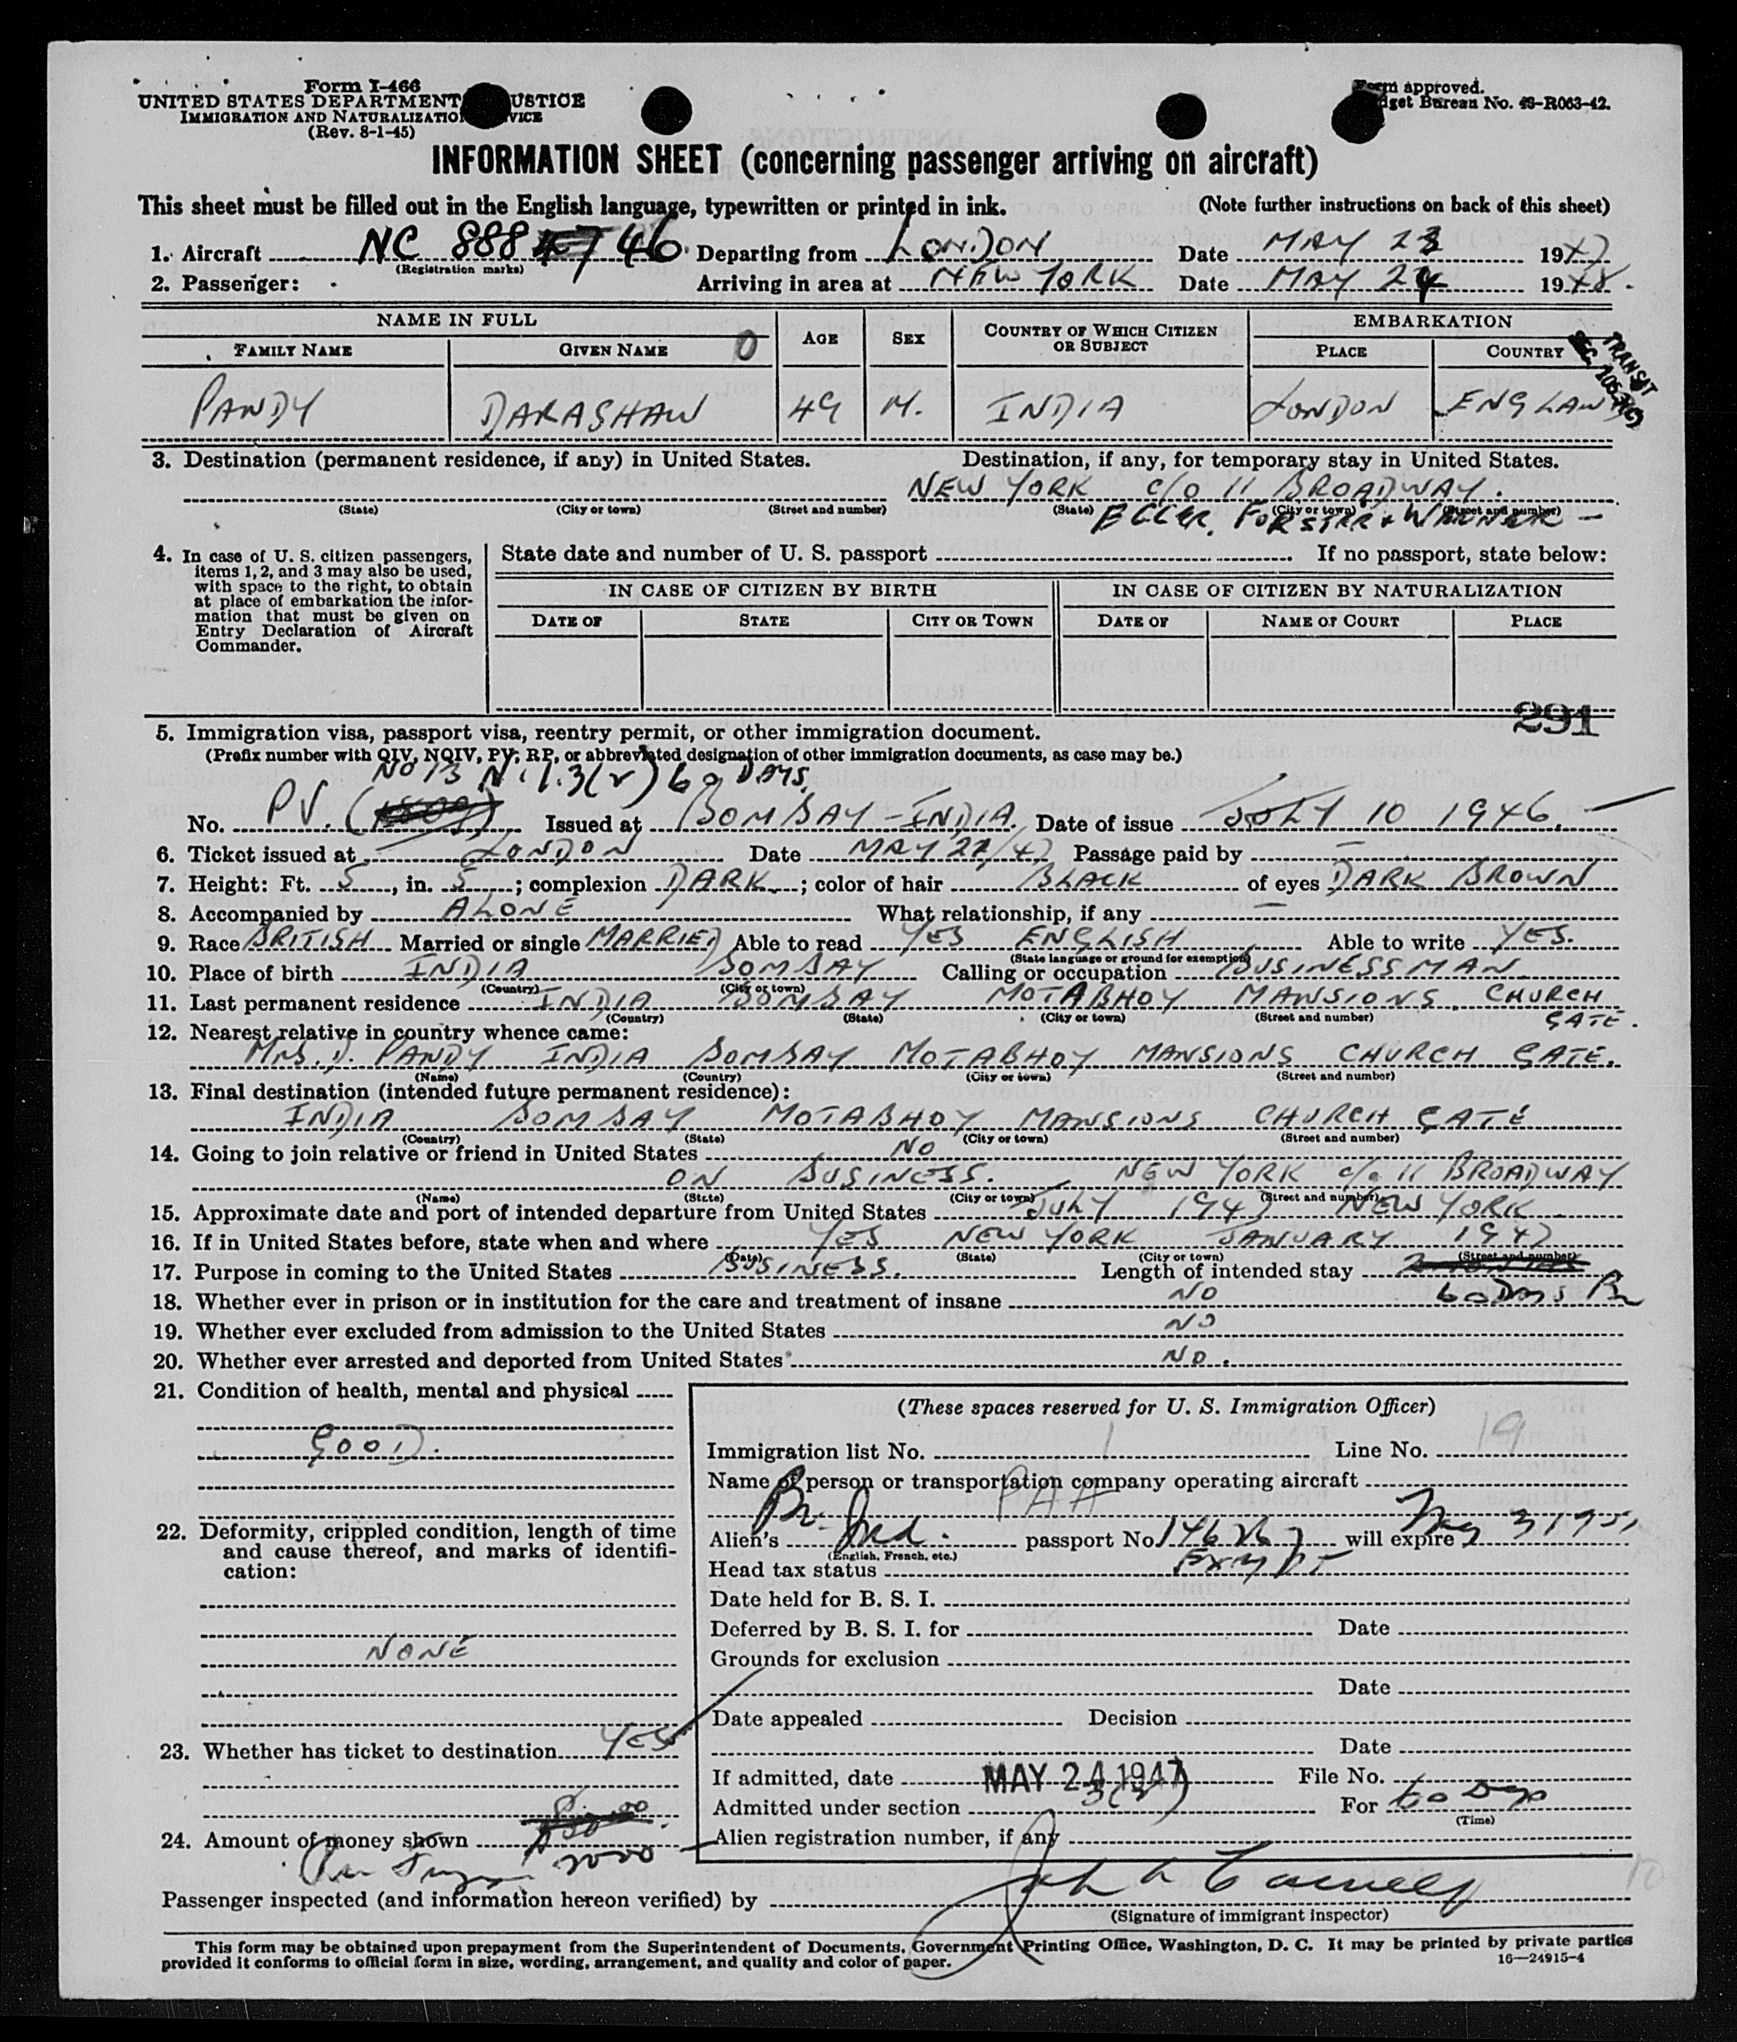 Form I-466
UNITED STATES DEPARTMENT USTICE
IMMIGRATION AND NATURALIZATION VICE
(Rev. 8-1-45)
Form approved.
dget Bureau No. 43-R063-42.
INFORMATION SHEET (concerning passenger arriving on aircraft)
This sheet must be filled out in the English language, typewritten or printed in ink. (Note further instructions on back of this sheet)
1. Aircraft NC 888 46 Departing from LONDON Date MAY 23 1947
(Registration marks)
2. Passenger: Arriving in area at NEW YORK Date MAY 24 194
NAME IN FULL AGE SEX COUNTRY OF WHICH CITIZEN OR SUBJECT EMBARKATION
FAMILY NAME GIVEN NAME 0 PLACE COUNTRY
TRANSIT
PANDY DARASHAW 49 M. INDIA LONDON ENGLAND
3. Destination (permanent residence, if any) in United States. Destination, if any, for temporary stay in United States.
NEW YORK c/o 11 BROADWAY.
(State) (City or town) (Street and number) (State) (City or town) (Street and number)
4. In case of U. S. citizen passengers, items 1, 2, and 3 may also be used, with space to the right, to obtain at place of embarkation the information that must be given on Entry Declaration of Aircraft Commander.
State date and number of U. S. passport If no passport, state below:
IN CASE OF CITIZEN BY BIRTH IN CASE OF CITIZEN BY NATURALIZATION
DATE OF STATE CITY OR TOWN DATE OF NAME OF COURT PLACE
291
5. Immigration visa, passport visa, reentry permit, or other immigration document.
(Prefix number with QIV, NQIV, PV, RP, or abbreviated designation of other immigration documents, as case may be.)
3(2) 60 DAYS
No. PV. Issued at BOMBAY - INDIA. Date of issue JULY 10 1946.
6. Ticket issued at LONDON Date MAY 22/47 Passage paid by —
7. Height: Ft. 5, in. 5; complexion DARK; color of hair BLACK of eyes DARK BROWN
8. Accompanied by ALONE What relationship, if any —
9. Race BRITISH Married or single MARRIED Able to read YES ENGLISH Able to write YES.
(State language or ground for exemption)
10. Place of birth INDIA BOMBAY Calling or occupation BUSINESSMAN
(Country) (City or town)
11. Last permanent residence INDIA BOMBAY MOTABHOY MANSIONS CHURCH GATE.
(Country) (State) (City or town) (Street and number)
12. Nearest relative in country whence came:
MRS. D. PANDY INDIA BOMBAY MOTABHOY MANSIONS CHURCH GATE.
(Name) (Country) (City or town) (Street and number)
13. Final destination (intended future permanent residence):
INDIA BOMBAY MOTABHOY MANSIONS CHURCH GATE
(Country) (State) (City or town) (Street and number)
14. Going to join relative or friend in United States NO
ON BUSINESS. NEW YORK c/o 11 BROADWAY
(Name) (State) (City or town) (Street and number)
15. Approximate date and port of intended departure from United States JULY 1947 NEW YORK
16. If in United States before, state when and where YES NEW YORK JANUARY 1947
(Date) (State) (City or town) (Street and number)
17. Purpose in coming to the United States BUSINESS. Length of intended stay
60 Days
18. Whether ever in prison or in institution for the care and treatment of insane NO
19. Whether ever excluded from admission to the United States NO
20. Whether ever arrested and deported from United States NO.
21. Condition of health, mental and physical
GOOD.
22. Deformity, crippled condition, length of time and cause thereof, and marks of identification:
NONE
23. Whether has ticket to destination YES
24. Amount of money shown
(These spaces reserved for U. S. Immigration Officer)
Immigration list No. 1 Line No. 19
Name of person or transportation company operating aircraft
PAA
Alien's Br. Ind. passport No. 146267 will expire
(English, French, etc.)
Head tax status Exempt
Date held for B. S. I.
Deferred by B. S. I. for Date
Grounds for exclusion
Date
Date appealed Decision
Date
If admitted, date MAY 24 1947 File No.
Admitted under section 3(2) For 60 Days
(Time)
Alien registration number, if any
Passenger inspected (and information hereon verified) by
(Signature of immigrant inspector)
This form may be obtained upon prepayment from the Superintendent of Documents, Government Printing Office, Washington, D. C. It may be printed by private parties
provided it conforms to official form in size, wording, arrangement, and quality and color of paper. 16—24915-4